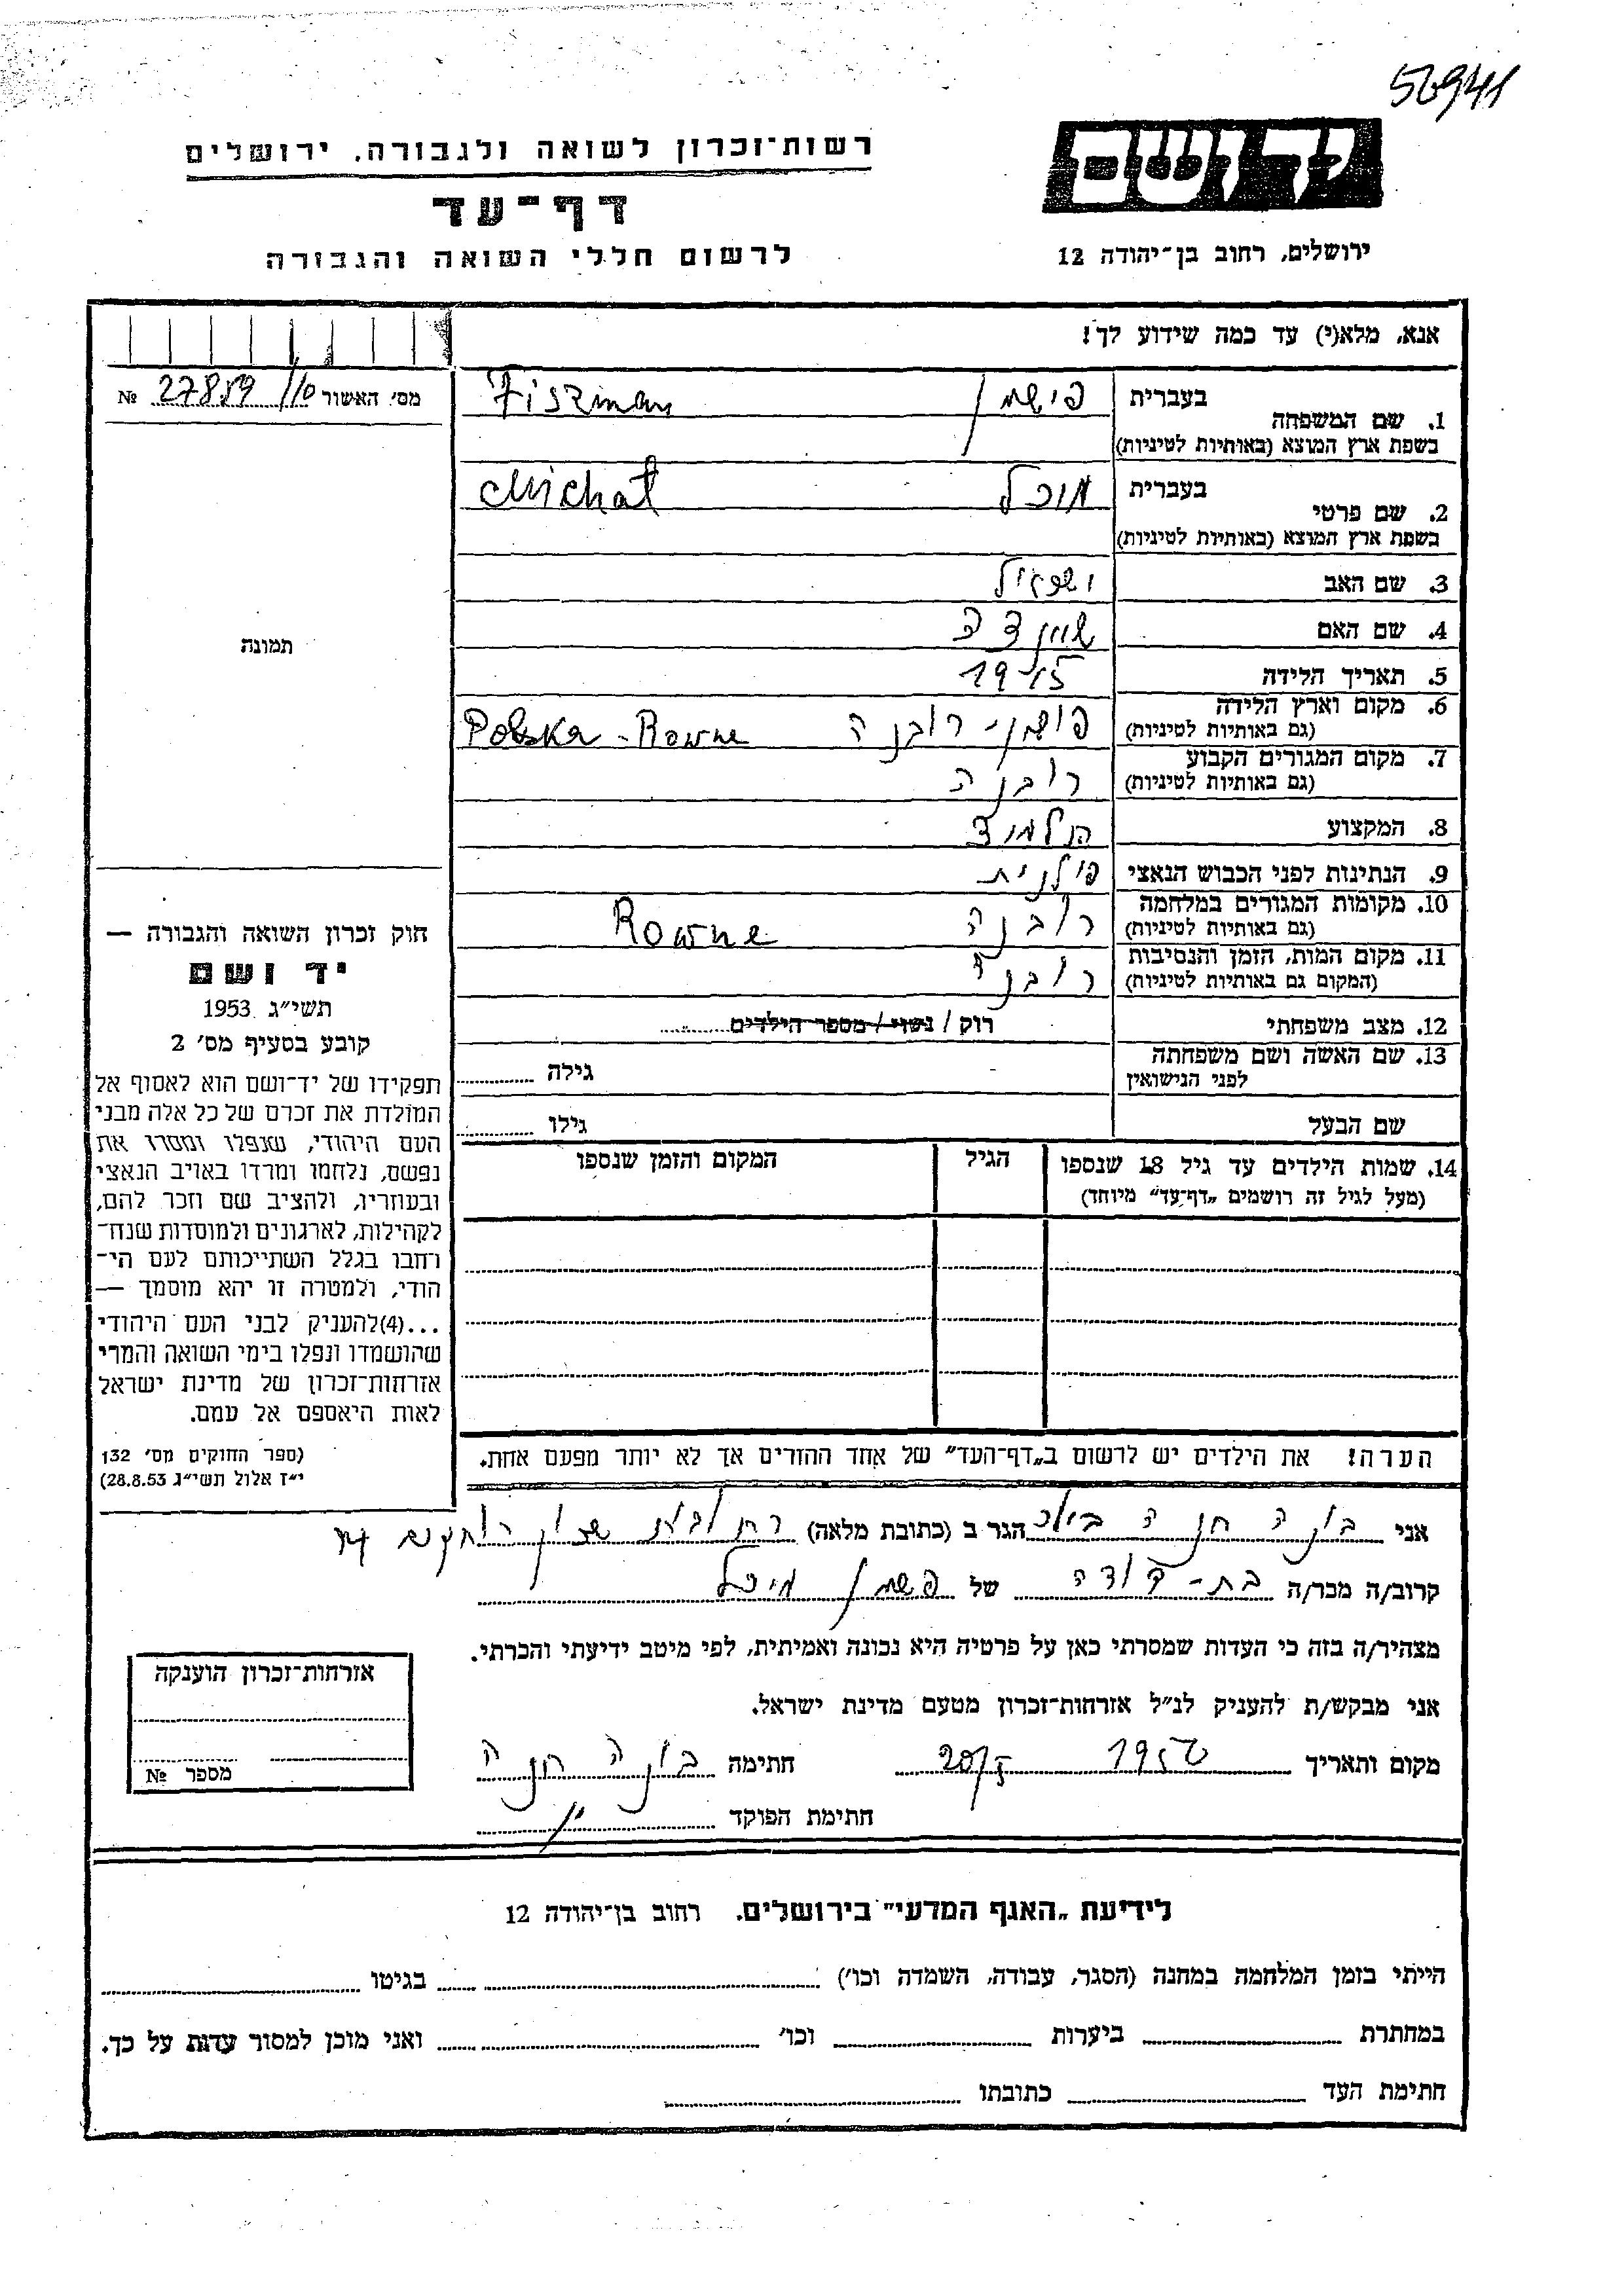 56941
יד ושם
רשות־זכרון לשואה ולגבורה, ירושלים
דף־עד
לרשום חללי השואה והגבורה
ירושלים, רחוב בן־יהודה 12
אנא, מלא(י) עד כמה שידוע לך!
מס׳ האשור 27859/10 №
1. שם המשפחה בעברית פישמן Fiszman
בשפת ארץ המוצא (באותיות לטיניות)
2. שם פרטי בעברית מיכל Michał
בשפת ארץ המוצא (באותיות לטיניות)
3. שם האב ישראל
4. שם האם
5. תאריך הלידה
6. מקום וארץ הלידה רובנה Polska - Rowne
(גם באותיות לטיניות)
7. מקום המגורים הקבוע רובנה
(גם באותיות לטיניות)
8. המקצוע תלמיד
9. הנתינות לפני הכבוש הנאצי פולנית
10. מקומות המגורים במלחמה רובנה Rowne
(גם באותיות לטיניות)
11. מקום המות, הזמן והנסיבות רובנה
(המקום גם באותיות לטיניות)
12. מצב משפחתי רוק / נשוי / מספר הילדים
13. שם האשה ושם משפחתה גילה
לפני הנישואין
שם הבעל גילו
14. שמות הילדים עד גיל 18 שנספו הגיל המקום והזמן שנספו
(מעל לגיל זה רושמים „דף־עד״ מיוחד)
תמונה
חוק זכרון השואה והגבורה —
יד ושם
תשי״ג 1953
קובע בסעיף מס׳ 2
תפקידו של יד־ושם הוא לאסוף אל
המולדת את זכרם של כל אלה מבני
העם היהודי, שנפלו ומסרו את
נפשם, נלחמו ומרדו באויב הנאצי
ובעוזריו, ולהציב שם וזכר להם,
לקהילות, לארגונים ולמוסדות שנח־
רחבו בגלל השתייכותם לעם הי־
הודי, ולמטרה זו יהא מוסמך —
...(4)להעניק לבני העם היהודי
שהושמדו ונפלו בימי השואה והמרי
אזרחות־זכרון של מדינת ישראל
לאות היאספם אל עמם.
(ספר החוקים מס׳ 132
י״ז אלול תשי״ג 28.8.53)
הערה! את הילדים יש לרשום ב„דף־העד״ של אחד ההורים אך לא יותר מפעם אחת.
אני חנה הגר ב (כתובת מלאה) רחובות
קרוב/ה מכר/ה בת-דודה של פישמן מיכל
מצהיר/ה בזה כי העדות שמסרתי כאן על פרטיה היא נכונה ואמיתית, לפי מיטב ידיעתי והכרתי.
אני מבקש/ת להעניק לנ״ל אזרחות־זכרון מטעם מדינת ישראל.
מקום ותאריך חתימה חנה
חתימת הפוקד
אזרחות־זכרון הוענקה
מספר №
לידיעת „האגף המדעי״ בירושלים. רחוב בן־יהודה 12
הייתי בזמן המלחמה במחנה (הסגר, עבודה, השמדה וכו׳) בגיטו
במחתרת ביערות וכו׳ ואני מוכן למסור עדות על כך.
חתימת העד כתובתו